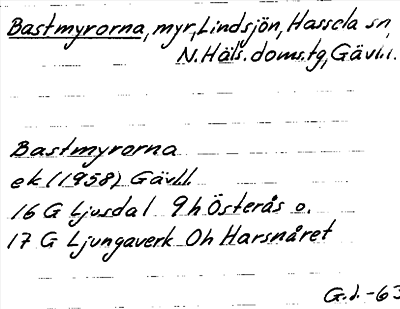 Bastmyrorna, myr, Lindsjön, Hassela sn,
N. Häls. doms.tg, Gävl.l.
Bastmyrorna
ek (1958) Gävl.l.
16 G Ljusdal 9h Österås o.
17 G Ljungaverk 0h Harsnåret
G.J. -63